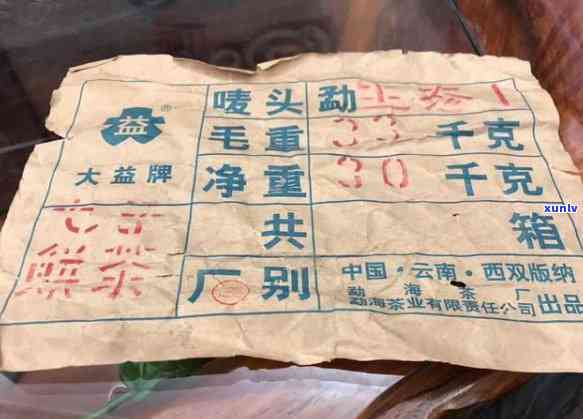 益®
大益牌
七子
餅茶
唛头 勐
毛重 33 千克
净重 30 千克
共 箱
厂别
中国·云南·西双版纳
勐海茶厂
勐海茶业有限责任公司 出品
xunlv